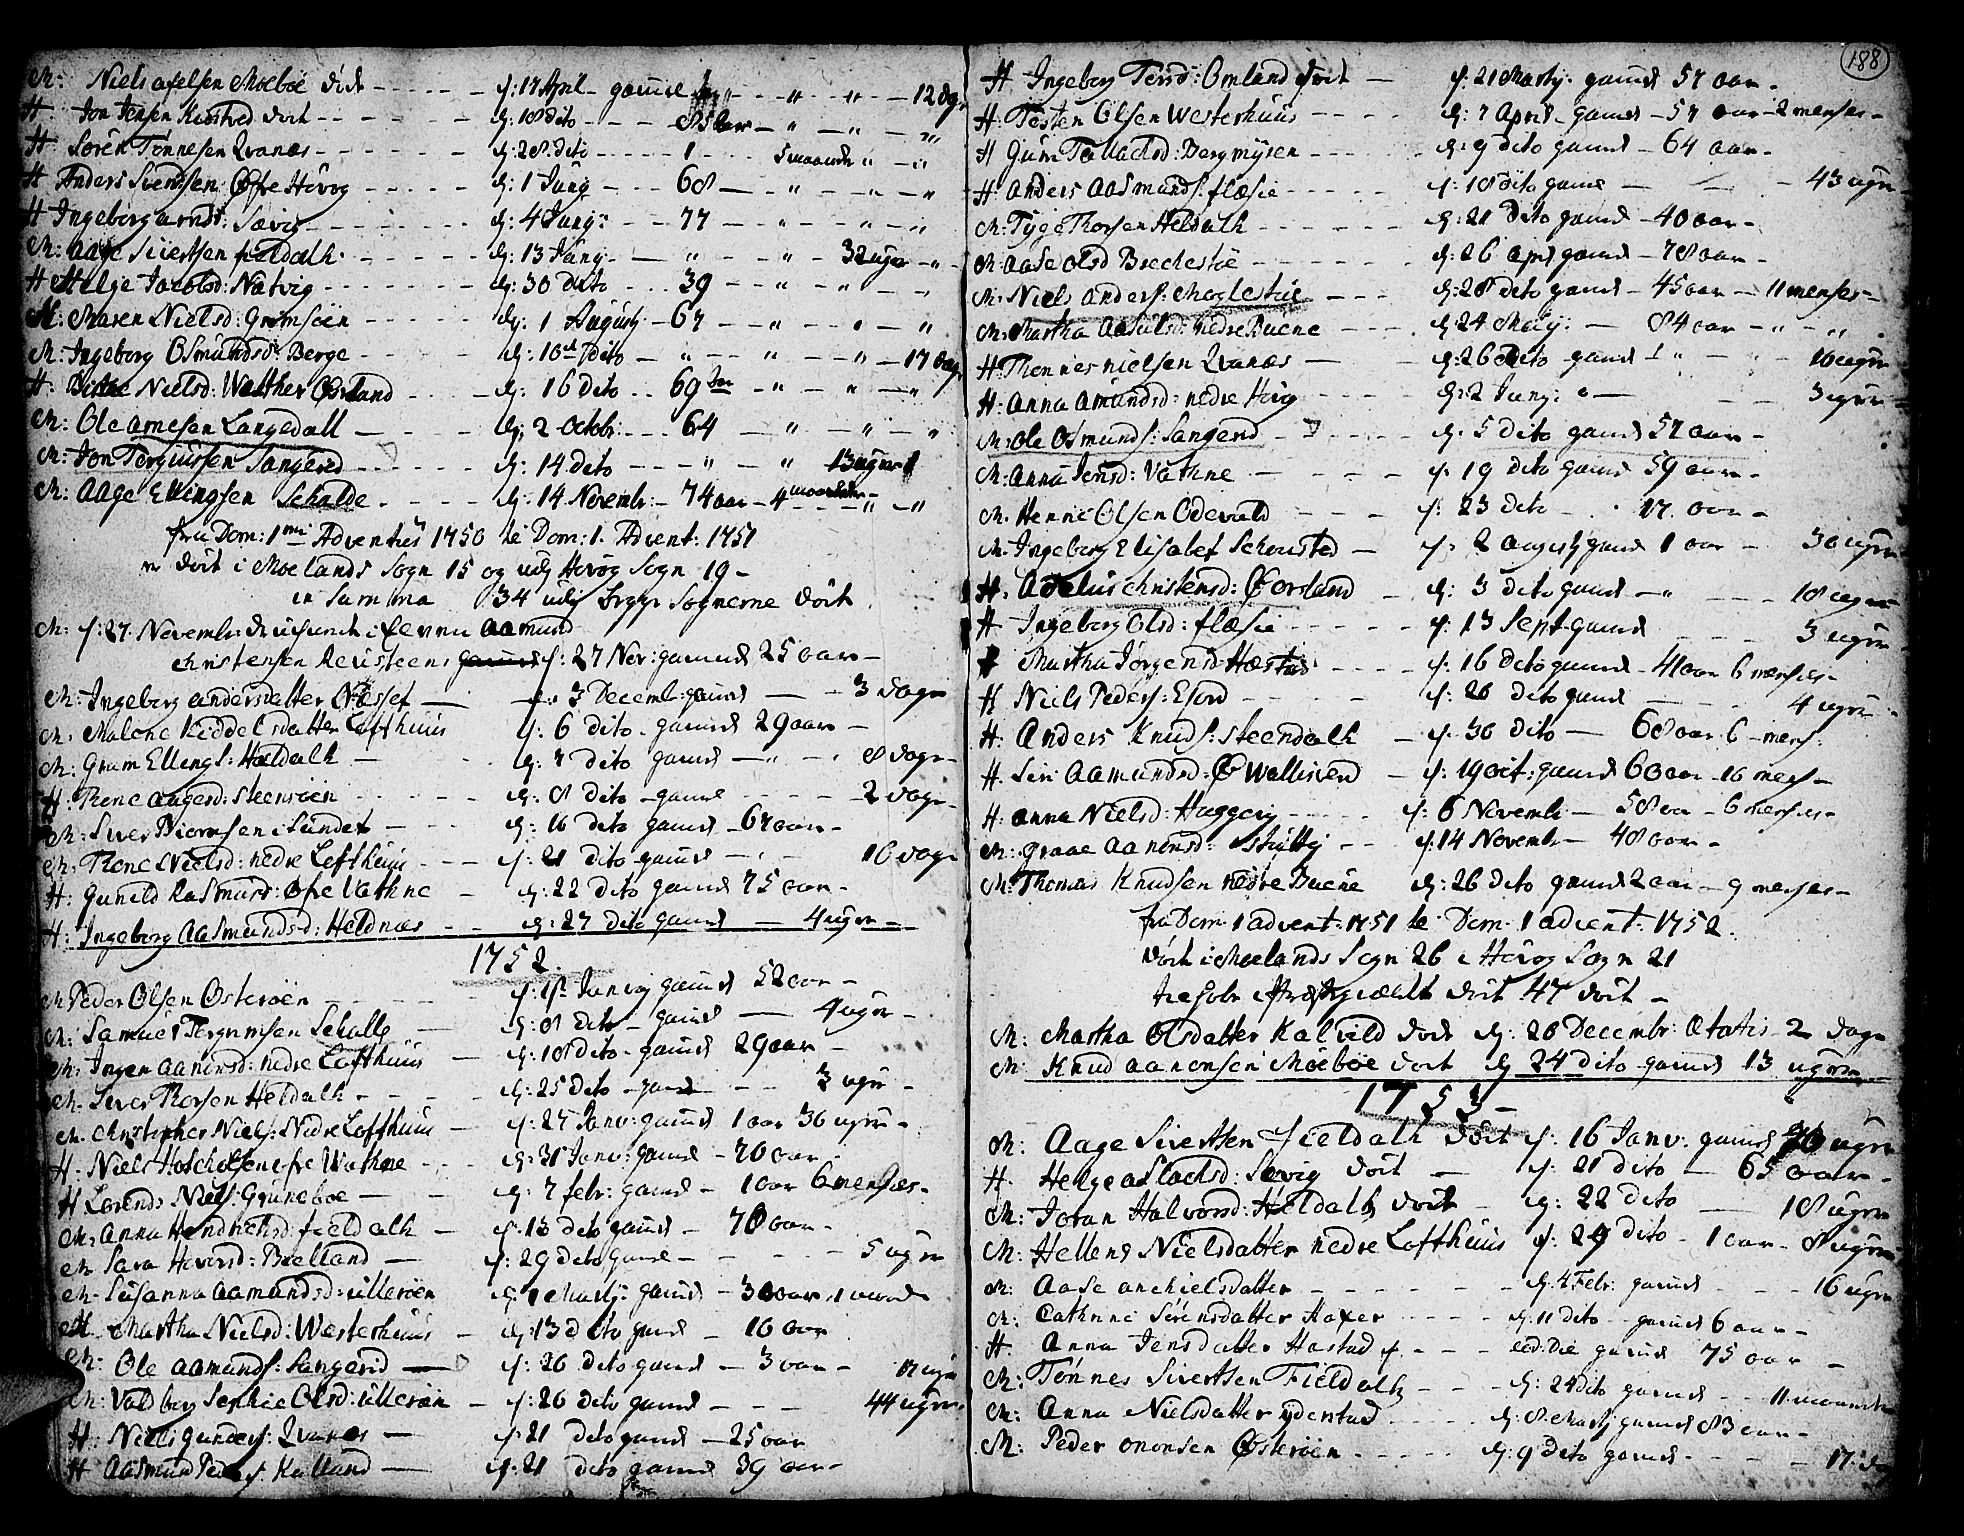 M: Niels Axelsen Moebøe død - d: 17 April - gammel - " - " - 12 dage
H: Jon Jensen Kiostved død - d: 18 dito - 85 aar - " - " - "
H Søren Tønnesen Qvanæs - d: 28 dito - 1 - 5 maaneder " - "
H Anders Svendsen Øfre Høvog - d: 1 Junij - 68 - " - " - "
H Ingeborg Arnds: Sævig - d: 4 Junij: - 77 - " - " - "
M: Aage Sivertsen Fieldalh - d: 13 Junij - " - " - 32 uger - "
H Helje Jacobsd: Natvig - d: 30 dito - 39 - " - " - "
M: Maren Nielsd: Gromsøen - d: 1 Augustj - 67 - " - " - "
M: Ingeborg Osmundsd: Berge - d: 10 dito - " - " - " - 17 dage
H: Nielsd: Walther Øvrland - d: 16 dito - 69 aar - " - " - "
M: Ole Arnesen Langedall - d: 2 Octobr: - 64 - " - " - "
M: Jon Terguissen Sangered - d: 14 dito - " - " 13 uger
M: Aage Ellingsen Schalde - d: 14 Novembr: - 74 aar - 4 maaneder - " - "
fra Dom: 1mi Adventus 1750 te Dom: 1. Advent: 1751
er død i Moelands Sogn 15 og udj Høvog Sogn 19 -
in Summa 34 udj begge Sognerne død
M: d: 27. Novembr: Amund
Christensen Reiersteens d: 27 Nov: gammel 25 aar -
M: Ingeborg Andersdatter Næsset - d: 3 Decemb: gamel - 3 dage
M: Malene Kiddelsdatter Loffthuus d: 6 dito - gammel 29 aar -
M: Gram Ellings: Hældalh - d: 7 dito gammel - " - 8 dage
H: Rene Aagesd: Steensøen d: 8 dito - gamel - 2 dage
M: Siver Biørnsen i Sundet - d: 16 dito gamel - 67 aar -
M: Rene Nielsd: nedre Loffthuus - d: 21 dito - gamel - 16 dage
H: Gunild Rasmusd: Øfre Vathne - d: 22 dito gamel 75 aar -
H: Ingeborg Aasmundsd: Heldnæs - d: 27 dito gamel - 4 uger -
1752.
M Peder Olsen Østerøen - d: 1st Januarj gamel 52 aar -
M: Samuel Tergumsen Schalle - d: 8 dito - gamel - 4 uger -
M: Inger Aanensd: nedre Loffthuus - d: 18 dito - gamel 29 aar -
M. Siver Thorsen Heldalh - d: 25 dito - gamel - 3 uger -
M. Christopher Niels: Nedre Loffthuus - d: 27 Janv: gamel 1 aar 36 uger -
H. Niels øfre Wathne - d: 31 Janv: gamel - 70 aar -
H Lorends Niels: Gruneboe - d: 7 febr: gamel - 1 aar 6 menses -
M: Anna Hendrichsd: Fieldalh - d: 13 dito gamel - 70 aar -
M Sara Hovorsd: Bielland - d: 29 dito gamel - 5 uger
M. Susanna Aamundsd: ulleröen d: 1 Martj: gamel - 30 aar, 1 maaned
M Martha Nielsd: Westerhuus - d: 13 dito gamel - 16 aar
M: Ole Aamunds: Sangerd - d: 26 dito gamel - 3 aar - 17 uger
M: Valdborg Sophie Olsd: ulleröen - d: 26 dito gamel - 44 uger.
H: Niels Gunders: Qvanæs - d: 21 dito gamel - 25 aar
H Aasmund Peders: Kalland - d: 21 dito gamel 39 aar -
188
H Ingeborg Tersd: Omland død - d: 21 Martj: gamel 57 aar -
H. Testen Olsen Westerhuus - d: 7 April - gamel - 57 aar - 2 menses -
H Guru Tallachsd: Bergmyren - d: 9 dito gamel - 64 aar -
H: Anders Aasmunds: Flæsie - d: 18 dito gamel - 43 uger -
M: Tyge Thorsen Heldalh - d: 21 dito gamel - 40 aar -
M Aase Olsd Brechestøe - d: 26 april gamel - 78 aar -
M: Niels Anders: Moglestue - d: 28 dito gamel - 45 aar - 11 menses -
M: Martha Aasulsd: nedre Buene - d: 24 Maij: - 84 aar - " - "
H: Thönnes Nielsen Qvanæs - d: 26 dito gamel 1 " - 16 uger
H: Anna Amundsd: nedre Høvog - d: 2 Junij: - 3 uger -
M: Ole Osmunds: Sangerd - d: 5 dito gamel 57 aar -
M: Anna Jensd: Vathne - d: 19 dito gamel 59 aar -
M. Henric Olsen Odevald - d: 23 dito - 17. aar -
M. Ingeborg Elisabet Schousted - d: 2 Augustj gamel 1 aar - 30 uger
H. Adelus Christensd: Øvrland - d: 3 dito gamel - " - 18 uger
H Ingeborg Olsd: Flæsie - d: 13 Sept. gamel - 3 uger
H Martha Jørgensd: Hæstad - d: 16 dito gamel - 41 aar 6 menses -
H Niels Peders: Eford - d: 26 dito gamel - 4 uger -
H: Anders Knuds: Steendalh - d: 30 dito - 68 aar 6 - mens:
H. Siri Aamundsd: Ø Wallisverd - d: 19 oct: gamel 60 aar - 10 menses -
H: Anna Nielsd: Huggerÿ - d: 6 Novembr - 58 aar - 6 menses -
M: Graae Aanonsd: Stuttj - d: 14 Novembr - 48 aar -
M: Thomas Knudsen nedre Buene d: 26 dito gamel 2 aar - 9 menses -
fra Dom. 1 Advent: 1751 te Dom. 1 Advent: 1752.
død i Moelands Sogn 26 i Høvog Sogn 21
død 47 død -
M: Martha Olsdatter Kalvild død d: 20 Decembr: Ætatis 2 dage
M: Knud Aanonsen Moeboe død d 24 dito gamel 13 uger
1753 -
M: Aage Sivertsen Fieldalh død d: 16 Janv: gamel uger
H. Helge Aslachsd: Sævig død - d: 21 dito - 65 aar -
M: Joran Halvorsd: Heldalh død - d: 22 dito - 18 uger
M: Hellene Nielsdatter nedre Loffthuus d: 29 dito - 1 aar - 8 uger
M: Aase Anchielsdatter - d: 4 Febr: gamel - 16 uger
M: Cathrine Sörensdatter Haxer - d: 11 dito - gamel 6 aar -
H. Anna Jensdatter Hæstad - eod: Die gamel 75 aar -
M: Tønnes Sivertsen Fieldalh - d: 24 dito gamel - 11 maaneder
M: Anna Nielsdatter yderstad - d: 8 Martj gamel 83 aar -
M: Peder Ononsen Østerøen - d: 9 dito gamel - 17: